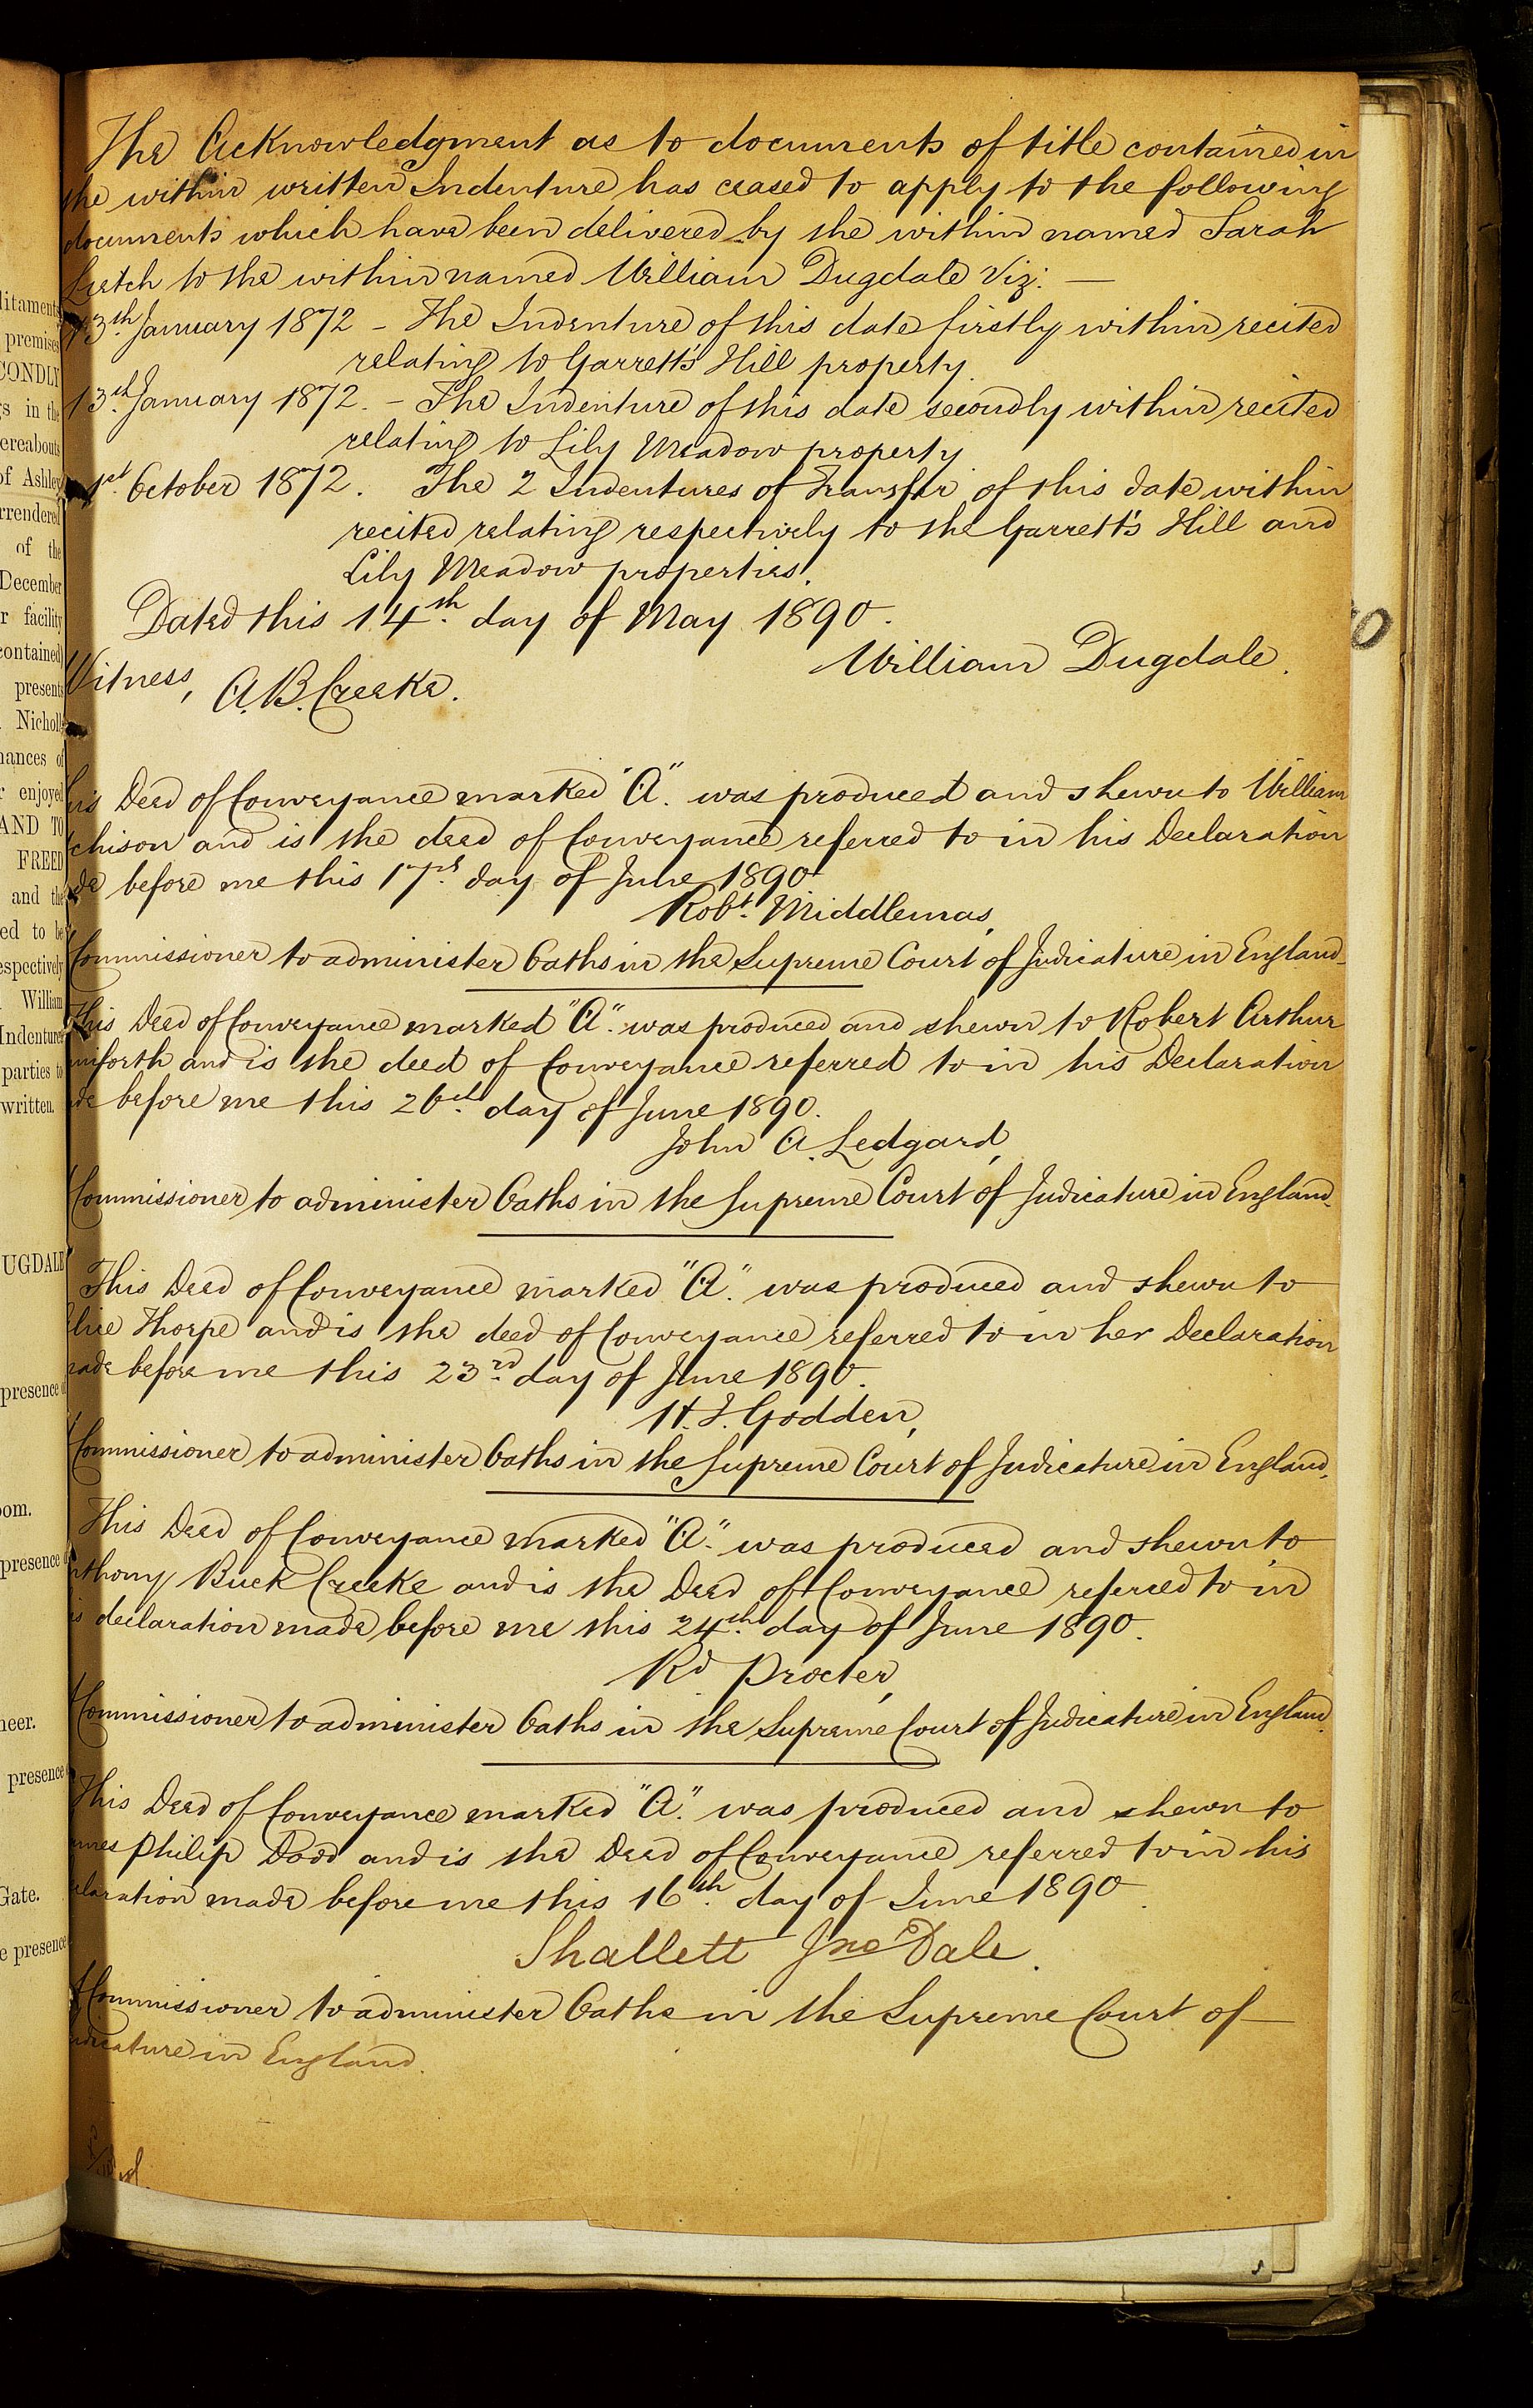 The Acknowledgment as to documents of title contained in
the within written Indenture has ceased to apply to the following
documents which have been delivered by the within named Sarah
to the within named William Dugdale Viz: —
13th January 1872 - The Indenture of this date firstly within recited
relating to Garrett's Hill property.
13th January 1872. - The Indenture of this date secondly within recited
relating to Lily Meadow property
1st October 1872. The 2 Indentures of Transfer of this date within
recited relating respectively to the Garrett's Hill and
Lily Meadow properties.
Dated this 14th day of May 1890.
William Dugdale.
Witness, A.B. Creeke.
his Deed of Conveyance marked "A". was produced and shewn to William
chison and is the deed of Conveyance referred to in his Declaration
de before me this 17th day of June 1890
Robt. Middlemas,
Commissioner to administer Oaths in the Supreme Court of Judicature in England.
This Deed of Conveyance marked "A". was produced and shewn to Robert Arthur
niforth and is the deed of Conveyance referred to in his Declaration
de before me this 26th day of June 1890.
John A. Ledgard,
Commissioner to administer Oaths in the Supreme Court of Judicature in England.
This Deed of Conveyance marked "A". was produced and shewn to
lice Thorpe and is the deed of Conveyance referred to in her Declaration
ade before me this 23rd day of June 1890.
H. J. Godden,
Commissioner to administer Oaths in the Supreme Court of Judicature in England.
This Deed of Conveyance marked "A". was produced and shewn to
nthony Buck Creeke and is the Deed of Conveyance referred to in
is declaration made before me this 24th day of June 1890.
Rd Procter,
Commissioner to administer Oaths in the Supreme Court of Judicature in England.
This Deed of Conveyance marked "A". was produced and shewn to
ames Philip Dodd and is the Deed of Conveyance referred to in his
claration made before me this 16th day of June 1890.
Shallett Jno Dale.
Commissioner to administer Oaths in the Supreme Court of
udicature in England.
litaments
premises
CONDLY
s in the
ereabouts
of Ashley
rrendered
of the
December
r facility
contained)
presents
Nicholl
nances of
r enjoyed
AND TO
FREED
and the
ed to be
espectively
William
Indenture
parties to
written.
UGDALE
presence o
oom.
presence o
neer.
presence
Gate.
e presence